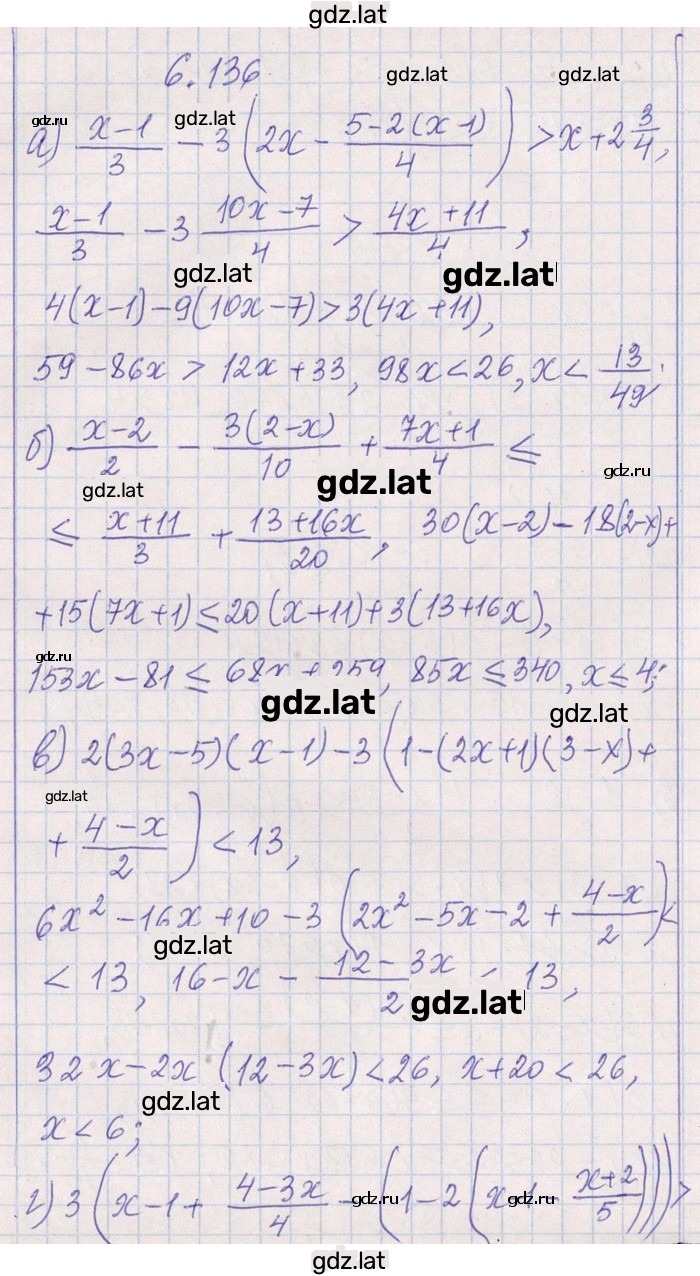 gdz.lat
6.136 gdz.lat gdz.lat
gdz.ru gdz.lat
а) (x-1)/3 - 3(2x - (5-2(x-1))/4) > x+2 3/4,
(x-1)/3 - 3 (10x-7)/4 > (4x+11)/4,
gdz.lat gdz.lat
4(x-1)-9(10x-7)>3(4x+11),
59-86x > 12x+33, 98x<26, x< 13/49.
б) (x-2)/2 - 3(2-x)/10 + (7x+1)/4 ≤
gdz.lat gdz.lat gdz.ru
≤ (x+11)/3 + (13+16x)/20, 30(x-2)-18(2-x)+
+15(7x+1)≤20(x+11)+3(13+16x),
gdz.ru
153x-81 ≤ 68x+259, 85x ≤340, x≤4;
gdz.lat gdz.lat
в) 2(3x-5)(x-1)-3(1-(2x+1)(3-x)+
gdz.lat
+ (4-x)/2) <13,
6x²-16x+10-3(2x²-5x-2+ (4-x)/2)<
gdz.lat
< 13, 16-x - (12-3x)/2 < 13,
gdz.lat
32 x-2x (12-3x)<26, x+20<26,
gdz.lat
x<6;
г) 3(x-1+ (4-3x)/4 - (1-2(x-1- (x+2)/5)))>
gdz.ru gdz.ru gdz.ru
gdz.lat